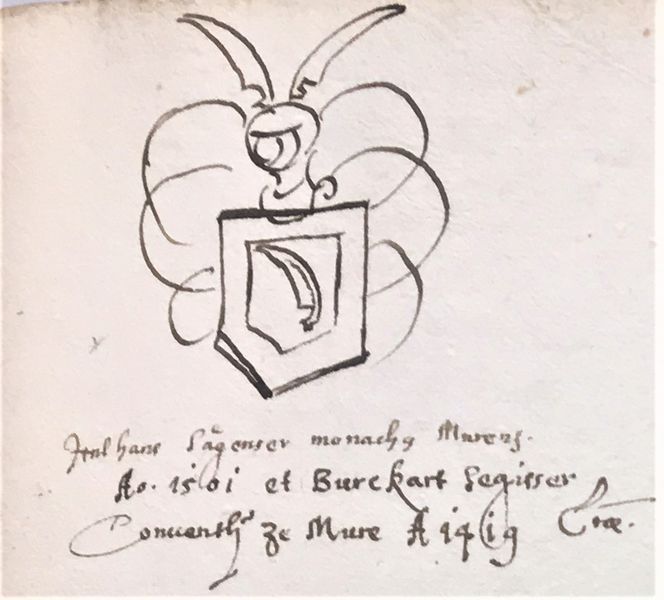 Hans Sägenser monachꝰ Murens.
Ao. 1501 et Burckart Segisser
Conuenth ze Mure A